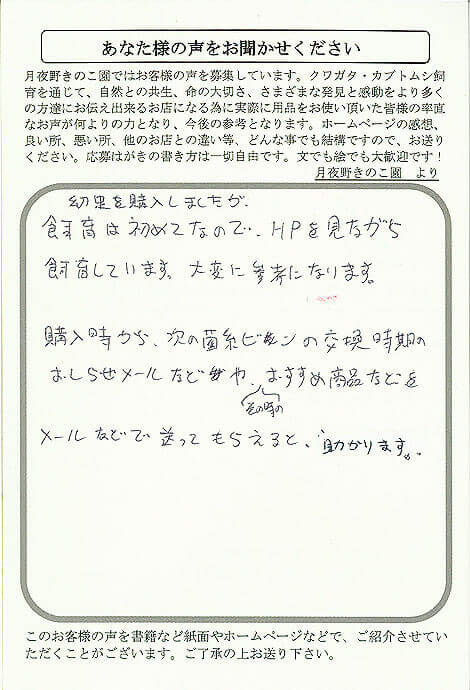 あなた様の声をお聞かせください
月夜野きのこ園ではお客様の声を募集しています。クワガタ・カブトムシ飼
育を通じて、自然との共生、命の大切さ、さまざまな発見と感動をより多く
の方達にお伝え出来るお店になる為に実際に用品をお使い頂いた皆様の率直
なお声が何よりの力となり、今後の参考となります。ホームページの感想、
良い所、悪い所、他のお店との違い等、どんな事でも結構ですので、お送り
ください。応募はがきの書き方は一切自由です。文でも絵でも大歓迎です！
月夜野きのこ園 より
幼虫を購入しましたが、
飼育は初めてなので、HPを見ながら
飼育しています。大変に参考になります。
購入時から、次の菌糸ビンの交換時期の
おしらせメールなどや、おすすめ商品などを
その時の
メールなどで送ってもらえると、助かります。
このお客様の声を書籍など紙面やホームページなどで、ご紹介させてい
ただくことがございます。ご了承の上お送り下さい。